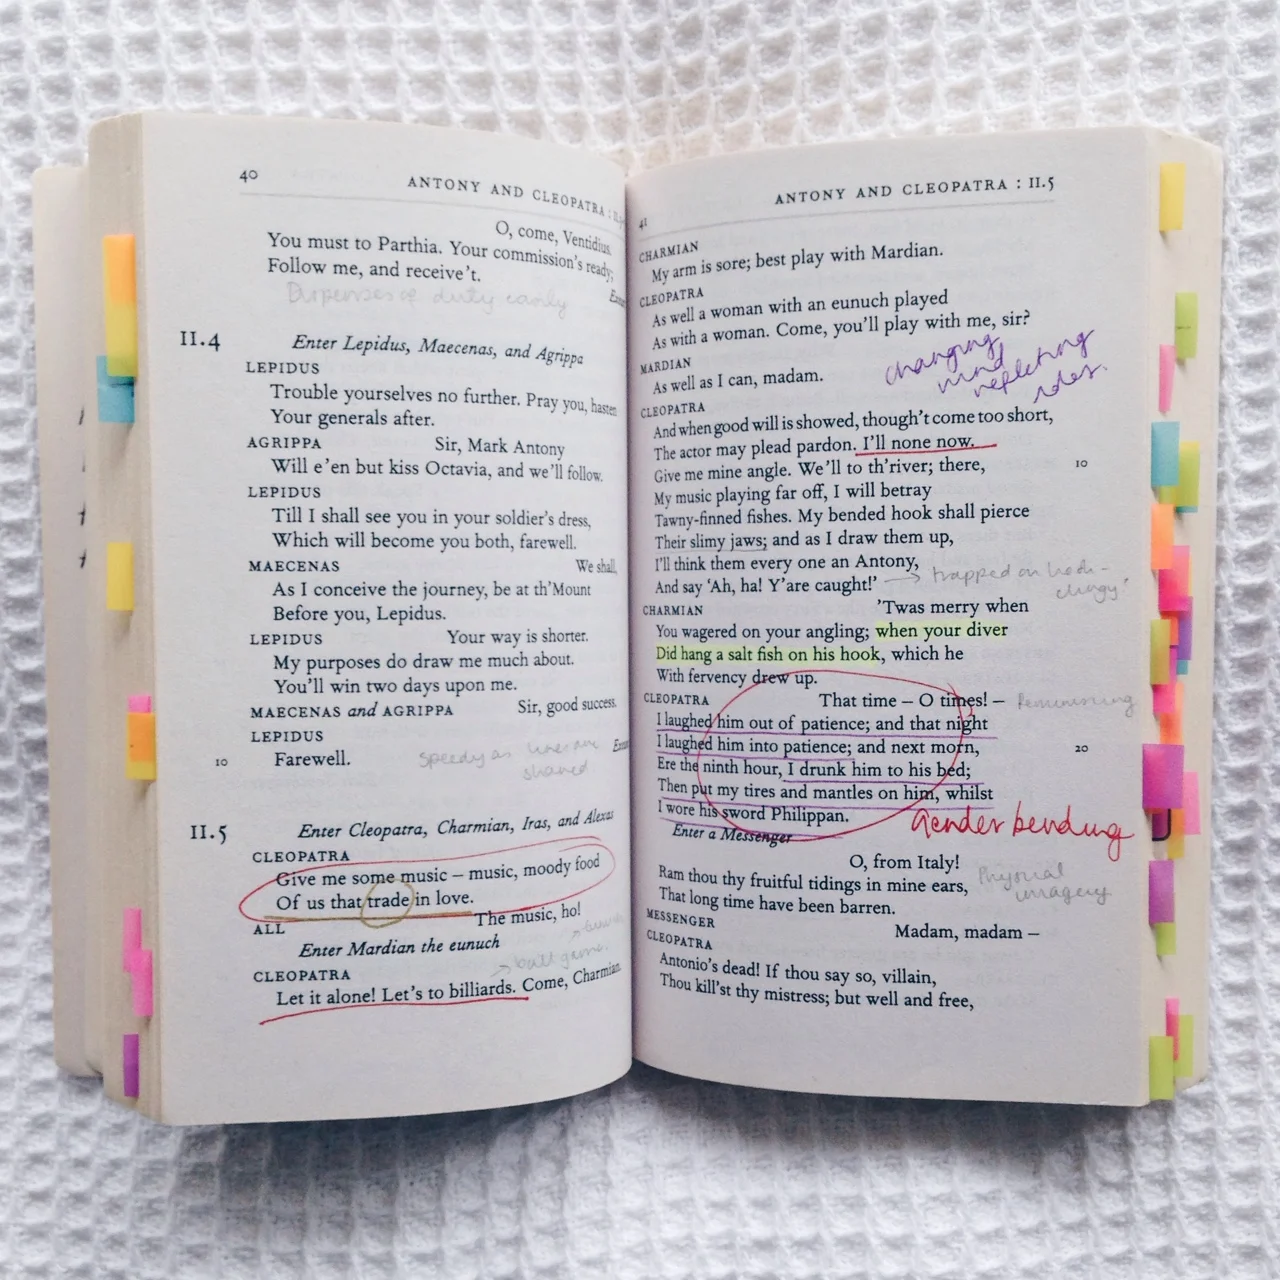 40
ANTONY AND CLEOPATRA : II.
O, come, Ventidius.
You must to Parthia. Your commission's ready;
Follow me, and receive't.
Dispenses of duty easily
II.4
Enter Lepidus, Maecenas, and Agrippa
LEPIDUS
Trouble yourselves no further. Pray you, hasten
Your generals after.
AGRIPPA Sir, Mark Antony
Will e'en but kiss Octavia, and we'll follow.
LEPIDUS
Till I shall see you in your soldier's dress,
Which will become you both, farewell.
MAECENAS We shall,
As I conceive the journey, be at th'Mount
Before you, Lepidus.
LEPIDUS Your way is shorter.
My purposes do draw me much about.
You'll win two days upon me.
MAECENAS and AGRIPPA Sir, good success.
LEPIDUS
10 Farewell.
speedy as lines are
shared
II.5
Enter Cleopatra, Charmian, Iras, and Alexas
CLEOPATRA
Give me some music – music, moody food
Of us that trade in love.
ALL The music, ho!
Enter Mardian the eunuch
→ ball game.
CLEOPATRA
Let it alone! Let's to billiards. Come, Charmian.
41
ANTONY AND CLEOPATRA : II.5
CHARMIAN
My arm is sore; best play with Mardian.
CLEOPATRA
As well a woman with an eunuch played
As with a woman. Come, you'll play with me, sir?
MARDIAN
As well as I can, madam.
changing
mind
reflecting
roles.
CLEOPATRA
And when good will is showed, though't come too short,
The actor may plead pardon. I'll none now.
Give me mine angle. We'll to th'river; there, 10
My music playing far off, I will betray
Tawny-finned fishes. My bended hook shall pierce
Their slimy jaws; and as I draw them up,
I'll think them every one an Antony,
And say 'Ah, ha! Y'are caught!' → trapped on hook -
CHARMIAN 'Twas merry when
You wagered on your angling; when your diver
Did hang a salt fish on his hook, which he
With fervency drew up.
CLEOPATRA That time – O times! – Reminiscing
I laughed him out of patience; and that night
I laughed him into patience; and next morn, 20
Ere the ninth hour, I drunk him to his bed;
Then put my tires and mantles on him, whilst
I wore his sword Philippan.
Gender bending
Enter a Messenger
O, from Italy!
Ram thou thy fruitful tidings in mine ears,
That long time have been barren.
Physical
imagery
MESSENGER Madam, madam –
CLEOPATRA
Antonio's dead! If thou say so, villain,
Thou kill'st thy mistress; but well and free,